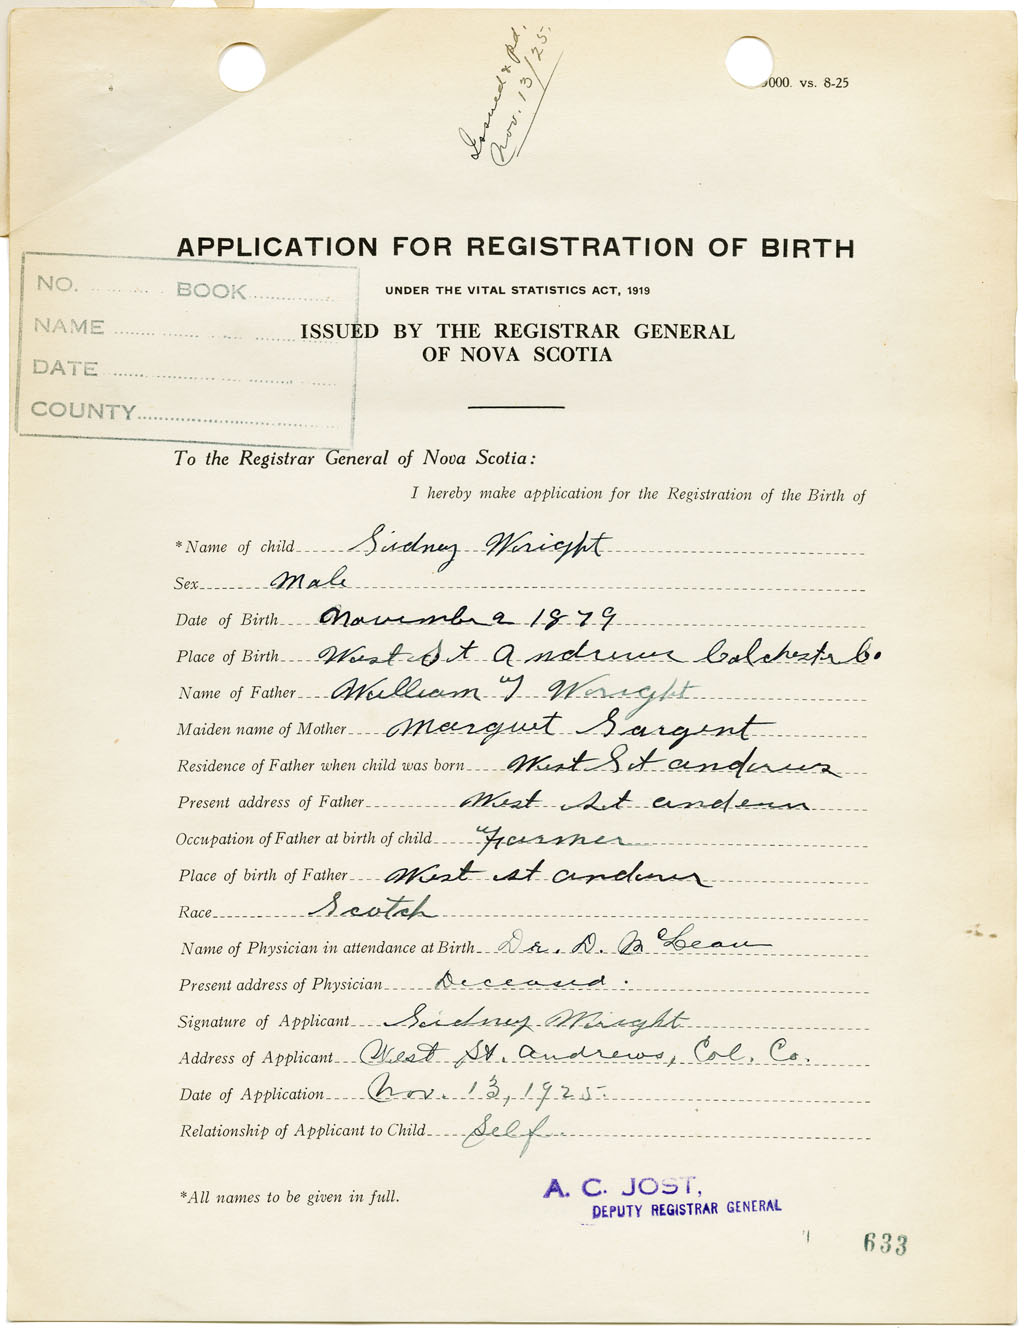 Issued & pd.
Nov. 13/25.
000. vs. 8-25
APPLICATION FOR REGISTRATION OF BIRTH
UNDER THE VITAL STATISTICS ACT, 1919
ISSUED BY THE REGISTRAR GENERAL
OF NOVA SCOTIA
NO. BOOK
NAME
DATE
COUNTY
To the Registrar General of Nova Scotia:
I hereby make application for the Registration of the Birth of
*Name of child Sidney Wright
Sex Male
Date of Birth November 2 1879
Place of Birth West St Andrews Colchester Co
Name of Father William J Wright
Maiden name of Mother Sargent
Residence of Father when child was born West St andrews
Present address of Father West St
Occupation of Father at birth of child Farmer
Place of birth of Father West st
Race Scotch
Name of Physician in attendance at Birth Dr. D. McLean
Present address of Physician Deceased.
Signature of Applicant Sidney Wright
Address of Applicant West St. Andrews, Col. Co.
Date of Application Nov. 13, 1925.
Relationship of Applicant to Child Self
*All names to be given in full.
A. C. JOST,
DEPUTY REGISTRAR GENERAL
633